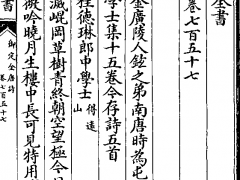 全書
卷七百五十七
金廣陵人鉉之弟南唐時為屯
學士集十五卷今存詩五首
程德琳郎中學士 得遠山
滅崐岡草樹青終朝空望極今
微吟曉月生樓中長可見特用
書
御定全唐詩
卷七百五十七